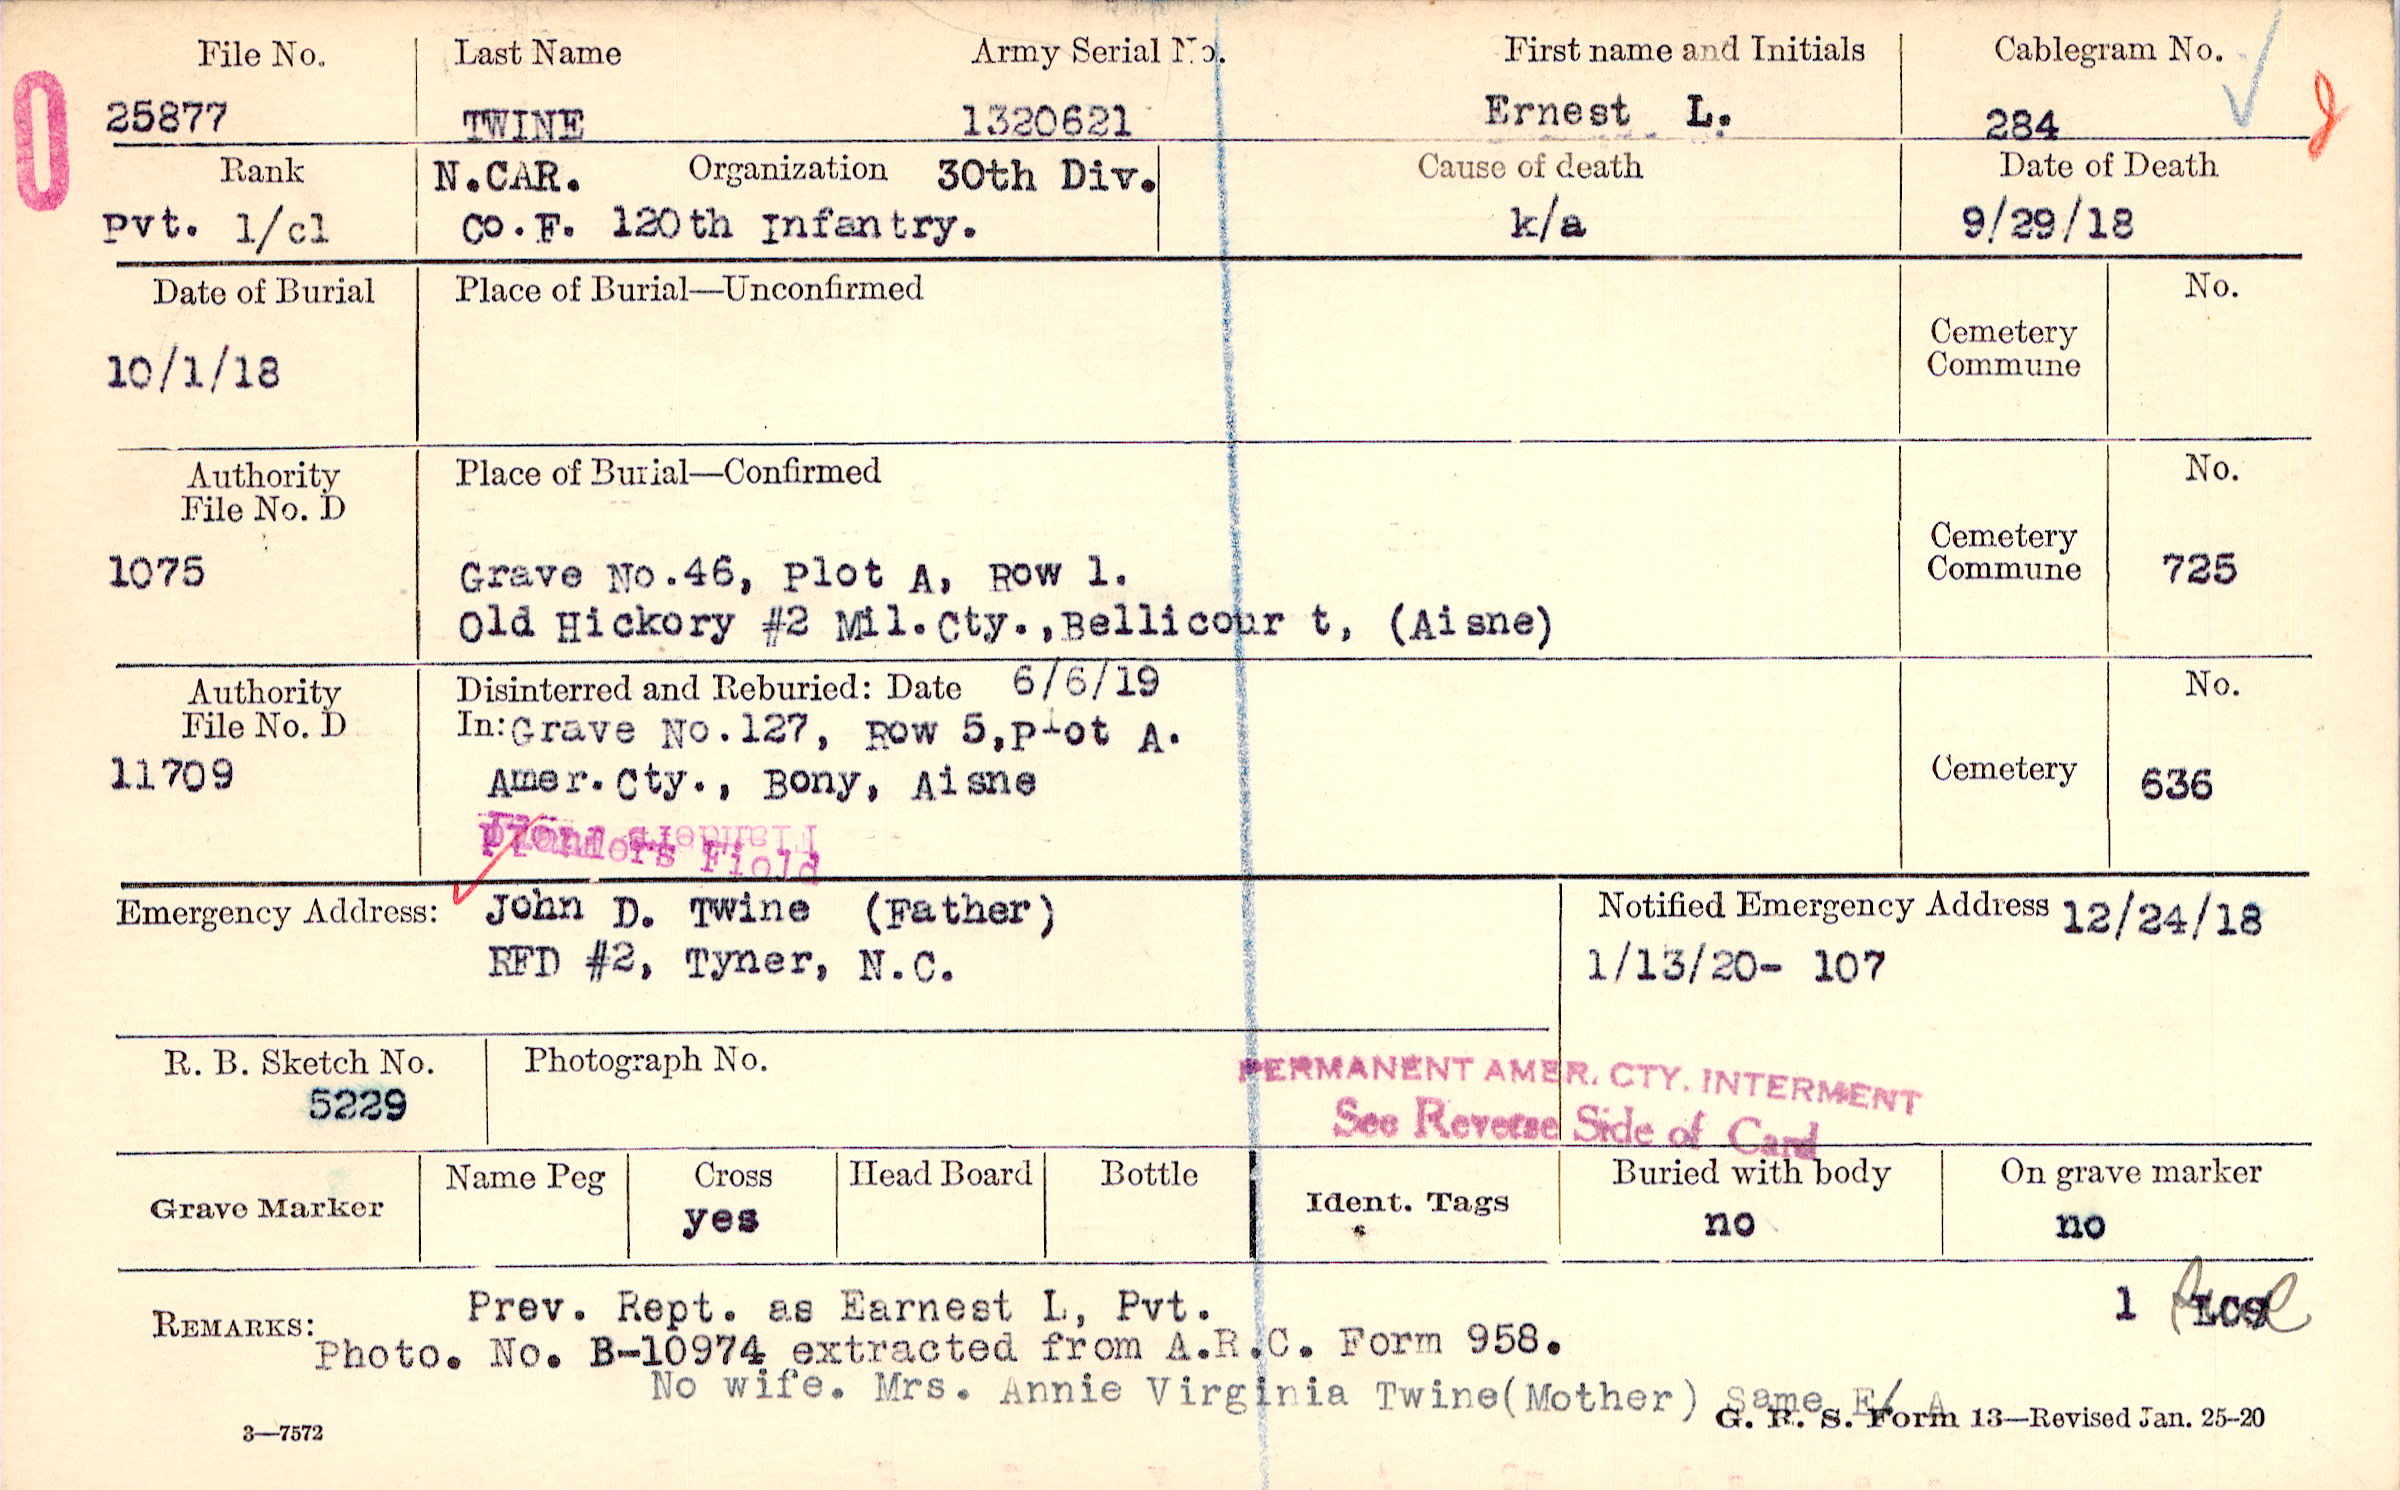 File No. Last Name Army Serial No. First name and Initials Cablegram No.
25877 TWINE 1320621 Ernest L. 284
Rank N.CAR. Organization 30th Div. Cause of death Date of Death
Pvt. 1/cl Co.F. 120th Infantry. k/a 9/29/18
Date of Burial Place of Burial—Unconfirmed No.
Cemetery
Commune
10/1/18
Authority Place of Burial—Confirmed No.
File No. D
Cemetery
Commune
1075 Grave No.46, Plot A, Row 1. 725
Old Hickory #2 Mil.Cty.,Bellicour t, (Aisne)
Authority Disinterred and Reburied: Date 6/6/19 No.
File No. D In:Grave No.127, Row 5,Plot A.
11709 Amer.Cty., Bony, Aisne Cemetery 636
Flanders Field
Emergency Address: John D. Twine (Father) Notified Emergency Address 12/24/18
RFD #2, Tyner, N.C. 1/13/20- 107
R. B. Sketch No. Photograph No.
5229
PERMANENT AMER. CTY. INTERMENT
See Reverse Side of Card
Grave Marker Name Peg Cross Head Board Bottle Ident. Tags Buried with body On grave marker
yes no no
REMARKS: Prev. Rept. as Earnest L, Pvt. 1
Photo. No. B-10974 extracted from A.R.C. Form 958.
No wife. Mrs. Annie Virginia Twine(Mother) Same E/ A
3—7572 G. R. S. Form 13—Revised Jan. 25-20